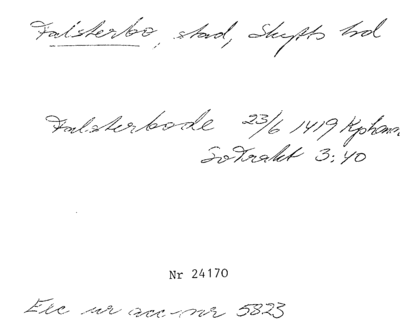 Falsterbo, stad, Skytts hd
Falsterbode 23/6 1419 Kphamn
SoTrakt 3:40
Nr 24170
Exc ur acc-nr 5823